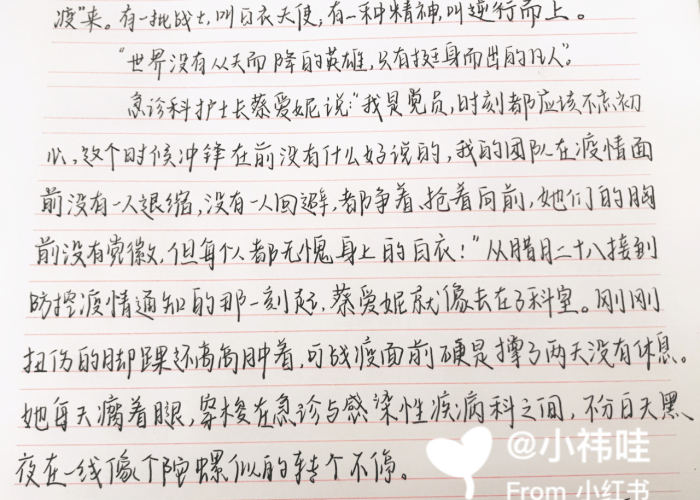 疫”来。有一批战士,叫白衣天使,有一种精神,叫逆行而上。
“世界没有从天而降的英雄,只有挺身而出的凡人”。
急诊科护士长蔡爱妮说:“我是党员,时刻都应该不忘初
心,这个时候冲锋在前没有什么好说的,我的团队在疫情面
前没有一人退缩,没有一人回避,都争着、抢着向前,她们的胸
前没有党徽,但每个人都无愧身上的白衣!”从腊月二十八接到
防控疫情通知的那一刻起,蔡爱妮就像去在了科室。刚刚
扭伤的脚踝还高高肿着,可战疫面前硬是撑了两天没有休息。
她每天瘸着腿,穿梭在急诊与感染性疾病科之间,不分白天黑
夜在一线像个陀螺似的转个不停。
@小祎哇
From 小红书